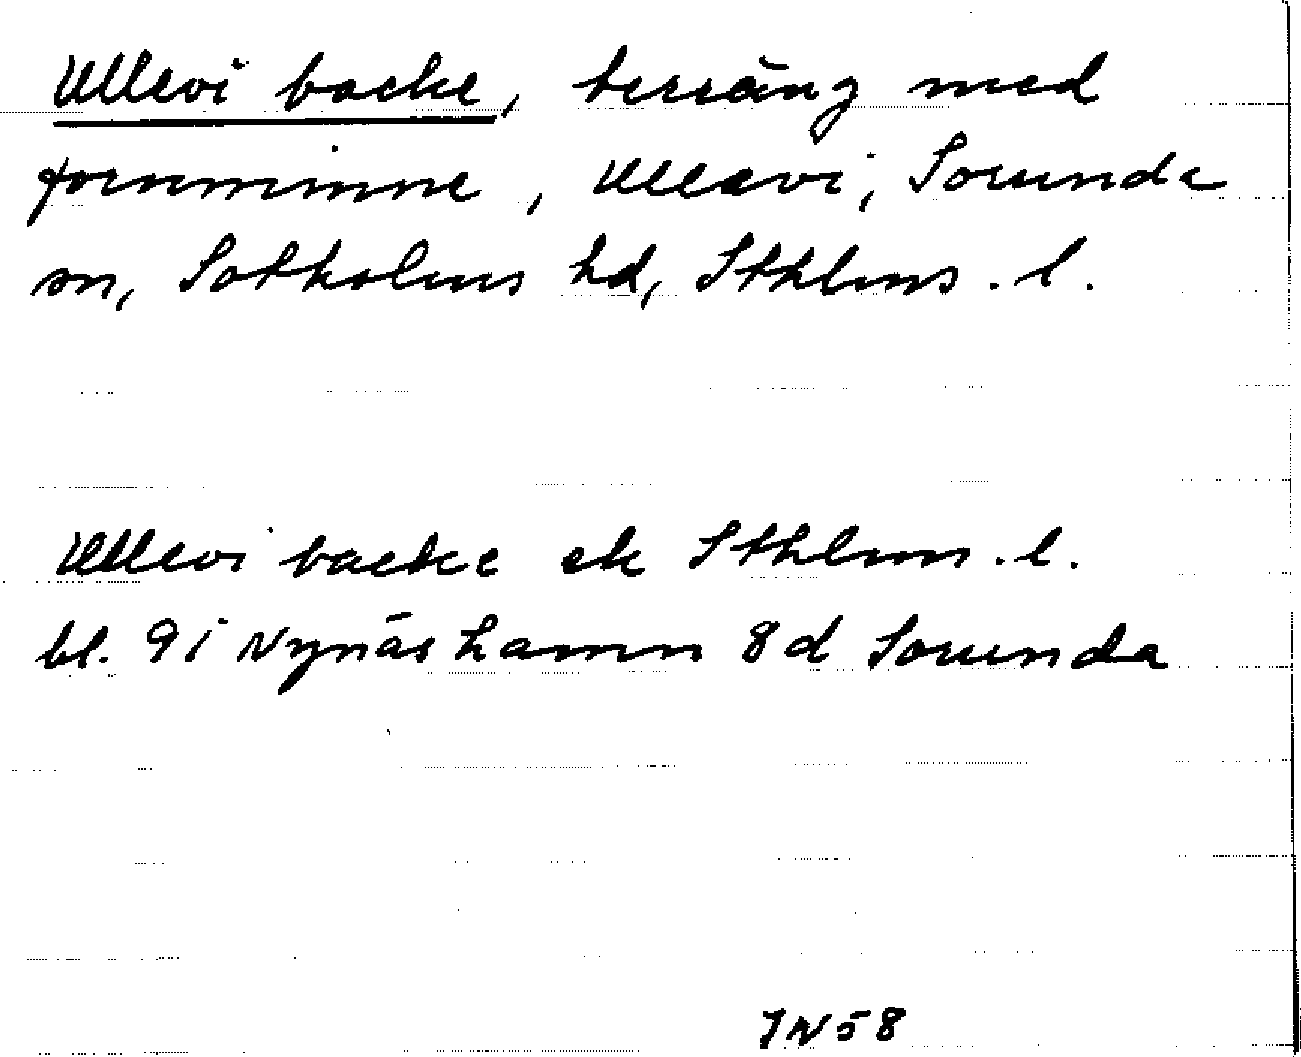 Ullevi backe, terräng med
fornminne, Ullevi, Sorunda
sn, Sotholms hd, Sthlms. l.
Ullevi backe ek Sthlms. l.
bl. 9i Nynäshamn 8d Sorunda
JN58